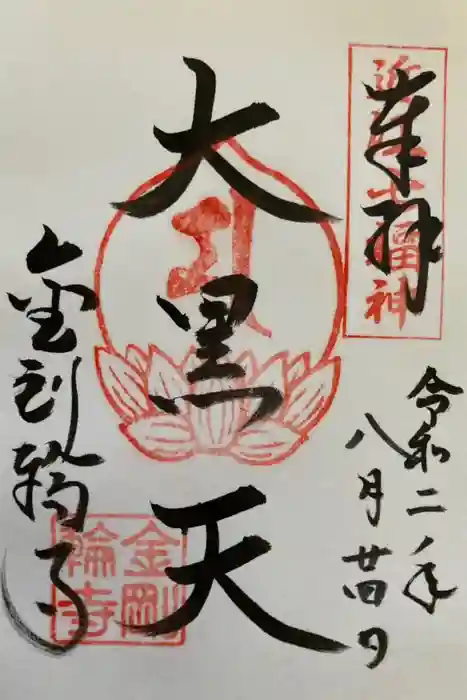 奉拝
近江七福神
令和二年
八月廿四日
大黒天
金剛輪寺
金剛輪寺